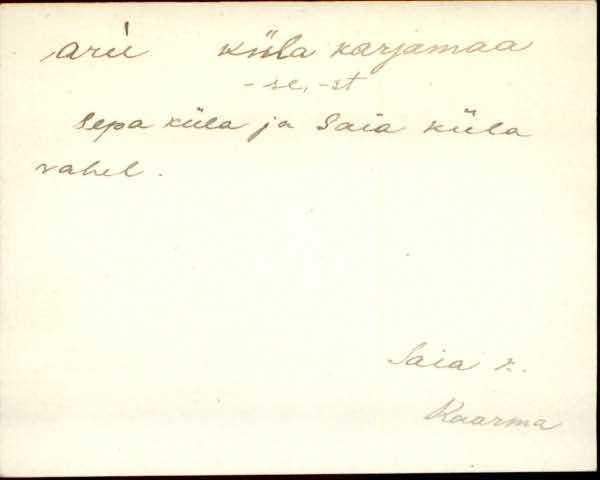 aru̍ küla karjamaa
-se, -st
Sepa küla ja Saia küla
vahel.
Saia k.
Kaarma